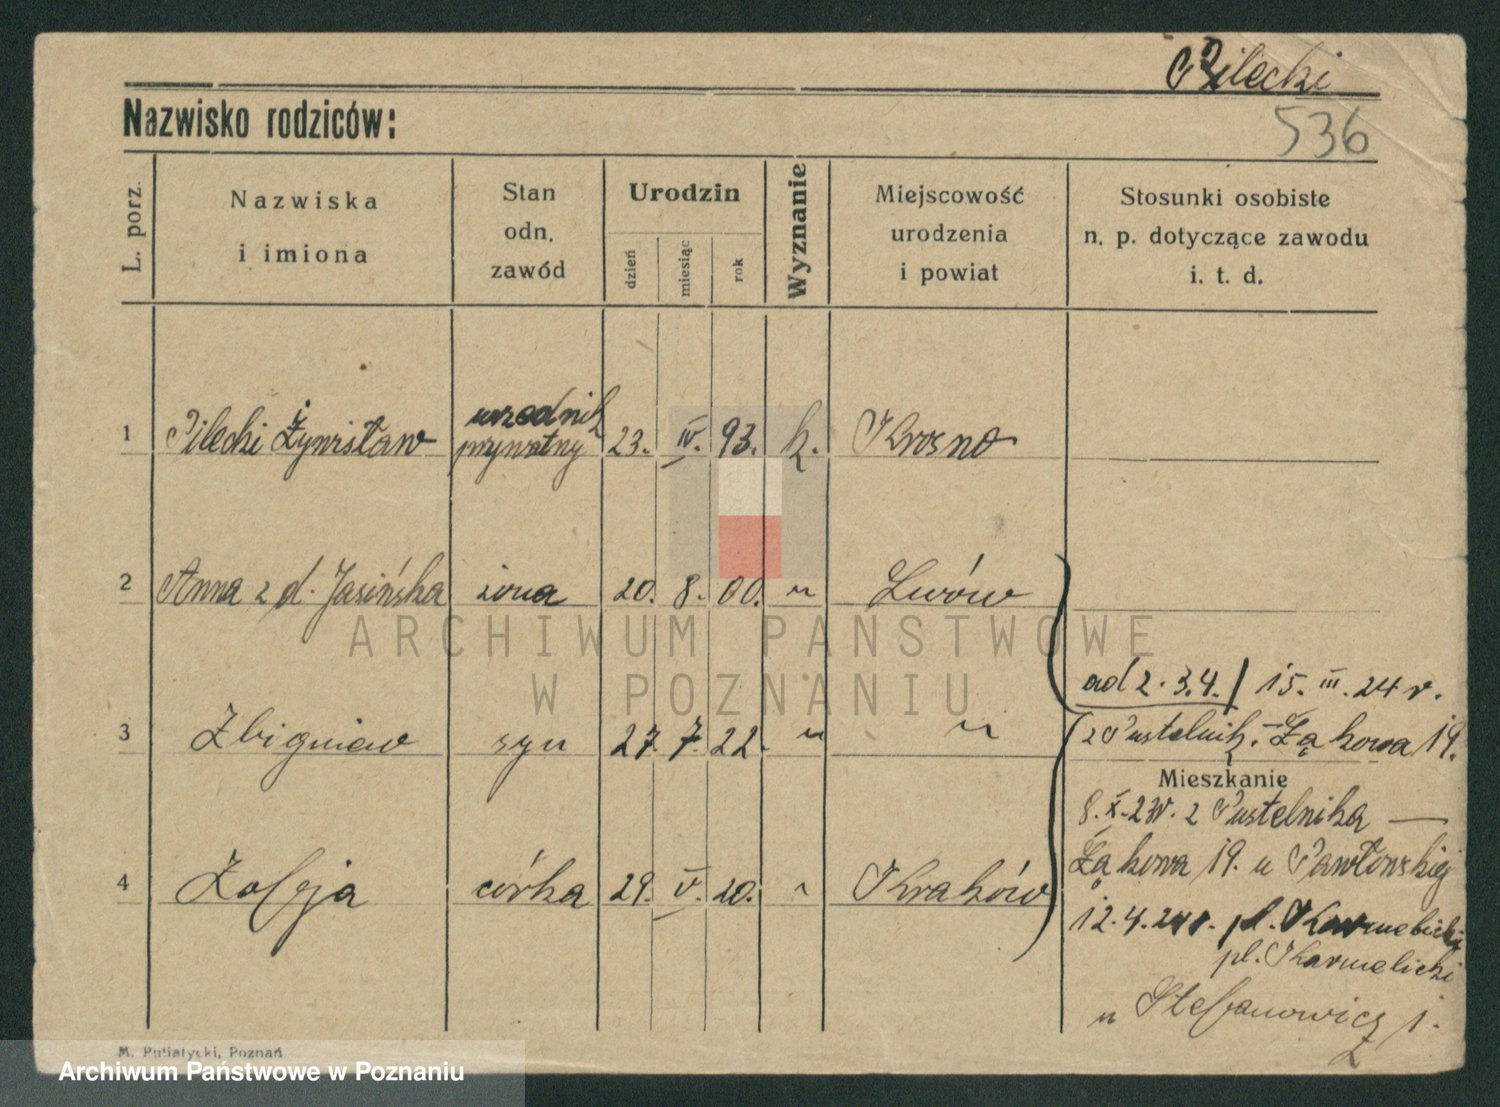 Pilecki
Nazwisko rodziców:
536
L. porz.
Nazwiska
i imiona
Stan
odn.
zawód
Urodzin
dzień
miesiąc
rok
Wyznanie
Miejscowość
urodzenia
i powiat
Stosunki osobiste
n. p. dotyczące zawodu
i. t. d.
1 Pilecki Żywisław urzednik prywatny 23. IV. 93. k. Krosno
2 Anna z d. Jasińska żona 20. 8. 00. " Lwów
ARCHIWUM PAŃSTWOWE
W POZNANIU
ad 2. 3. 4. / 15. III. 24 r.
3 Zbigniew syn 27. 7. 22. " "
z Pustelnik. - Łąkowa 19.
Mieszkanie
8. X. 23r. z Pustelnika —
4 Zofja córka 29. V. 20. " Kraków
Łąkowa 19. u Pawłowskiej
12. 4. 24r. pl. Karmelicki
pl. Karmelicki
u Stefanowicz 1.
M. Putiatycki, Poznań
Archiwum Państwowe w Poznaniu